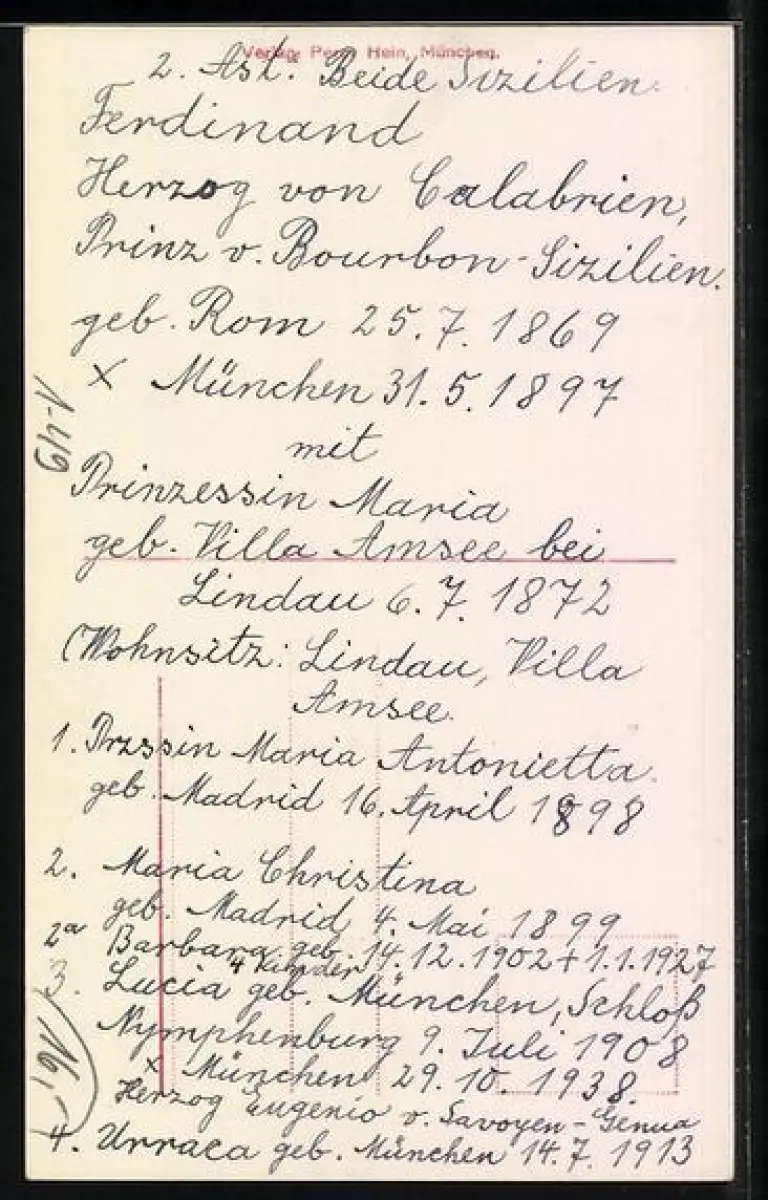 Verlag: Hein, München.
2. Ast. Beide Sizilien.
Ferdinand
Herzog von Calabrien,
Prinz v. Bourbon-Sizilien.
geb. Rom 25.7.1869
X München 31.5.1897
mit
1-49
Prinzessin Maria
geb. Villa Amsee bei
Lindau 6.7.1872
(Wohnsitz: Lindau, Villa
Amsee.
1. Przssin Maria Antonietta.
geb. Madrid 16. April 1898
2. Maria Christina
geb. Madrid, 4. Mai 1899
2a Barbara geb. 14.12.1902 + 1.1.1927
4 Kinder
3. Lucia geb. München, Schloß
Nymphenburg 9. Juli 1908
x München 29.10.1938.
Herzog Eugenio v. Savoyen-Genua
4. Urraca geb. München 14.7.1913